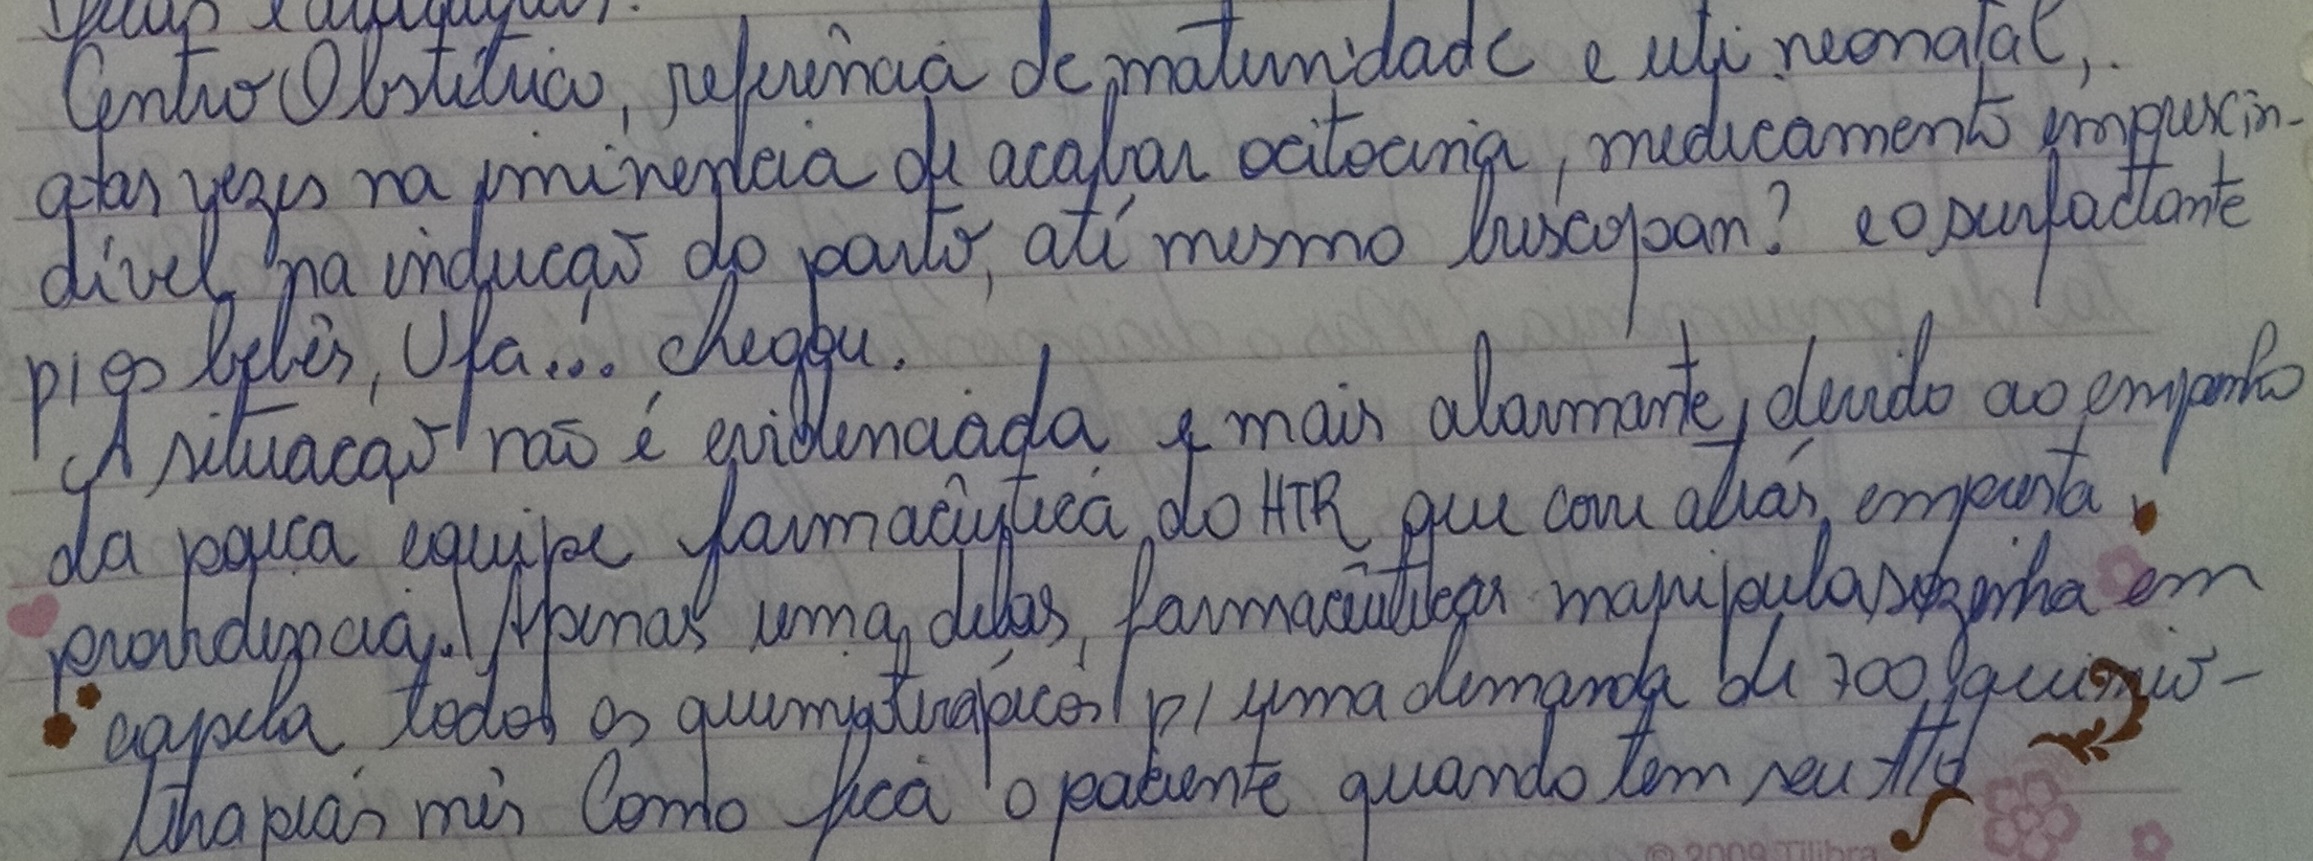 Centro Obstétrico, referência de maternidade e uti neonatal,.
vezes na iminência de acabar ocitocina, medicamento imprescin-
dível na inducação do parto, até mesmo buscopan? e o surfactante
p/ os bebês, Ufa... chegou.
A situação não é evidenciada e mais alarmante, devido ao empenho
da pouca equipe farmacêutica do HTR que corre atrás, empresta,
providencia. Apenas uma delas, farmacêuticas manipula sozinha em
capela todos os quimoterápicos p/ uma demanda de 700 quimio-
therapias mês Como fica o paciente quando tem seu tto
© 2009 Tilibra